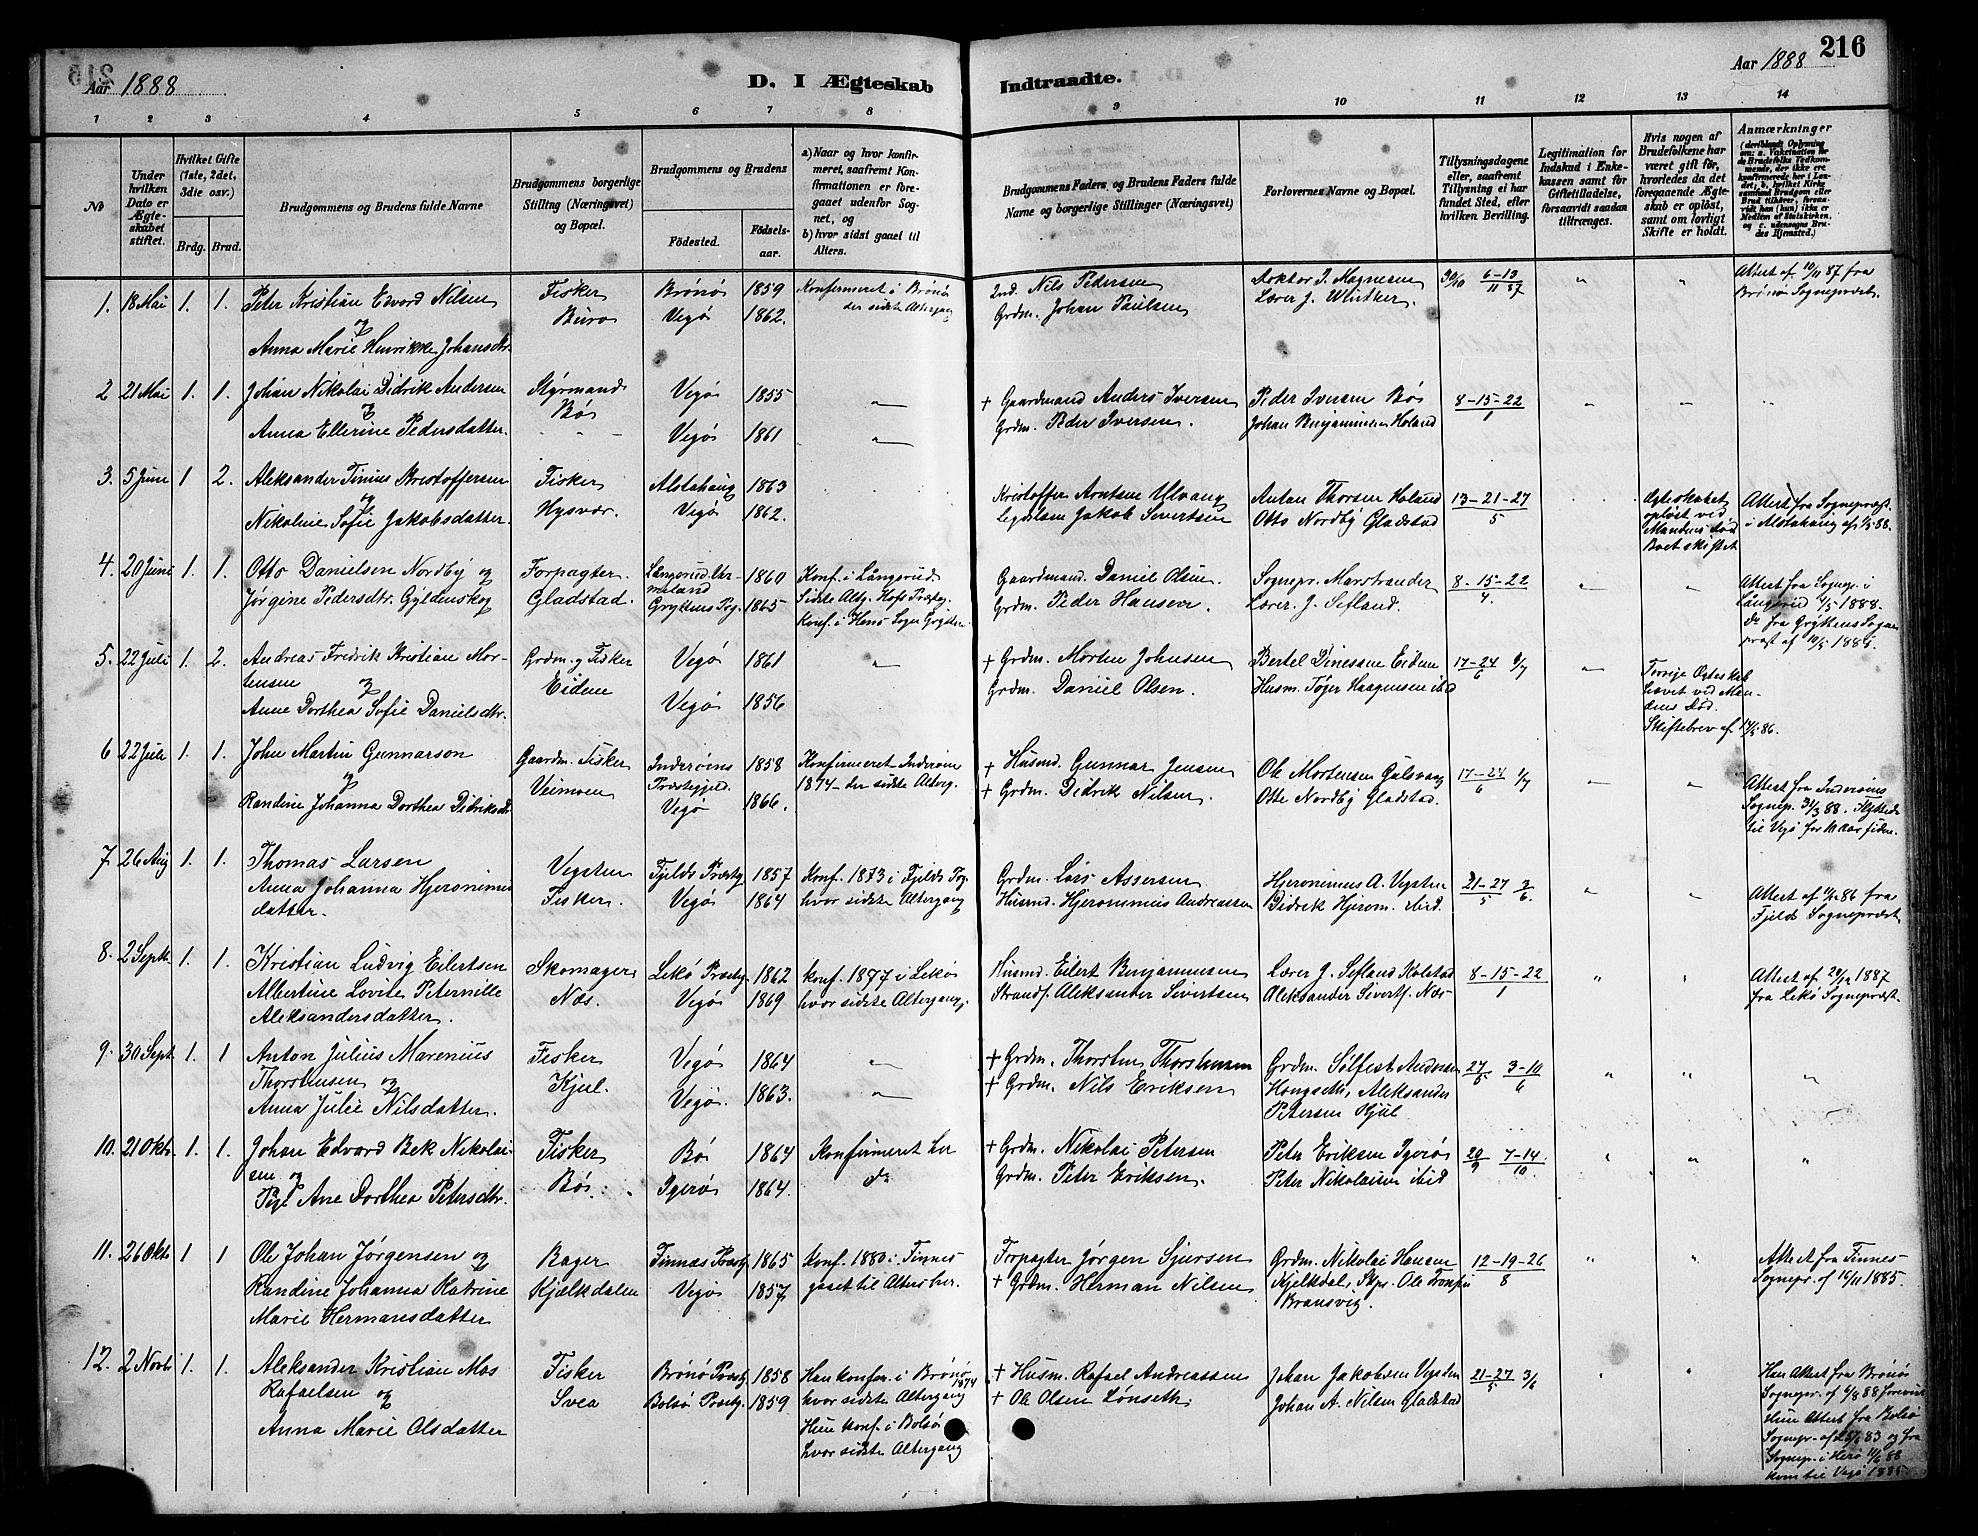 216
Aar 1888
D. I Ægteskab Indtraadte.
Aar 1888
1 2 3 4 5 6 7 8 9 10 11 12 13 14
No
Under hvilken Dato er Ægteskabet stiftet.
Hvilket Gifte (1ste, 2det, 3die osv.)
Brdg. Brud.
Brudgommens og Brudens fulde Navne
Brudgommens borgerlige Stilling (Næringsvei) og Bopæl.
Brudgommens og Brudens
Fødested.
Fødselsaar.
a) Naar og hvor konfirmeret, saafremt Konfirmationen er foregaaet udenfor Sognet, og
b) hvor sidst gaaet til Alters.
Brudgommens Faders og Brudens Faders fulde Navne og borgerlige Stillinger (Næringsvei)
Forlovernes Navne og Bopæl.
Tillysningsdagene eller, saafremt Tillysning ei har fundet Sted, efter hvilken Bevilling.
Legitimation for Indskud i Enkekassen samt for Giftetilladelse, forsaavidt saadan tiltrænges.
Hvis nogen af Brudefolkene har været gift før, hvorledes da det foregaaende Ægteskab er opløst, samt om lovligt Skifte er holdt.
Anmærkninger
1. 18 Mai 1. 1. Peter Kristian Edvard Nilsen Fisker Brønø 1859 Konfirmeret i Brønø 2nd. Nils Pedersen Doktor J. Magnesen 30/10 6-13/11 87 Attest af 10/11 87 fra
og Buro Vegø 1862. der sidste Altergang Grdm. Johan Paulsen Lærer J. Winther Brønø Sognepræst.
Anna Marie Henrikke Johansdtr.
2 21 Mai 1. 1. Johan Nikolai Didrik Andersen Styrmand Vegø 1855 + Gaardmand Anders Iversen Peder Iversen Bøs 8-15-22/1
og Bøs
Anna Ellerine Pedersdatter. Vegø 1861 Grdm. Peder Iversen. Johan Benjaminsen Holand
3. 5 Juni 1 2. Aleksander Tinius Kristoffersen Fisker Alstahaug 1863 Kristoffer Arntsen Ulvang Anton Thorsen Holand 13-21-27/5 Ægteskabet Attest fra Sognepræst
og opløst ved
Nikoline Sofie Jakobsdatter. Hysvær. Vegø 1862. Jakob Sivertsen Otto Nordby Gladstad Mandens død i Alstahaug af 1/5 88.
Boet skiftet
4. 20 Juni 1. 1. Otto Danielsen Nordby og Forpagter. 1860 Konf. i Långsrud. Gaardmand. Daniel Olsen. Sognepr. Marstrander 8-15-22/4. Attest fra Sognep. i
Jørgine Pedersdtr. Gyldenskog Gladstad. Gryttens Pg. 1865 Sidste Altg. Hofs Præstg. Grdm. Peder Hansen. Lærer. J. Sefland. Långsrud 4/5 1888.
Konf. i Hens Sogn Grytten. do fra Gryttens Sognepræst af 10/5 1888.
5. 22 Juli 1. 2. Andreas Fredrik Kristian Mortensen Grdm. og Fisker Vegø 1861 + Grdm. Morten Johnsen Bertel Dinessen Eidem 17-24/6 1/7 Forrige Ægteskab
og Eidem hævet ved Mandens Død.
Anne Dorthea Sofie Danielsdtr. Vegø 1856 Grdm. Daniel Olsen. Husm. Tøger Haagensen ibid Skiftebrev af 17/5 86.
6 22 Juli 1. 1. John Martin Gunnarson Gaardm. Fisker Inderøens 1858 Konfirmeret Inderøen + Husmd. Gunnar Jensen Ole Mortensen Gulsvaag 17-24/6 1/7 Attest fra Inderøens
og Veimoen Præstegjeld. 1874 – der sidste Alterg. Sognep. 31/3 88. Flyttede
Randine Johanna Dorthea Didriksdtr Vegø 1866. + Grdm. Didrik Nilsen. Otto Nordby Gladstad. til Vegø for 10 aar siden.
7. 26 Aug 1. 1. Thomas Larsen Vegsten Fjelds Præstg 1857 Konf. 1873 i Fjelds Pg. Grdm. Lars Assersen Hjeronimus A. Vegsten 21-27/5 3/6. Attest af 11/12 86 fra
Anna Johanna Hjeronimusdatter. Fisker. Vegø 1864 hvor sidste Altergang Husmd. Hjeronimus Andreassen Didrik Hjerom. ibid. Fjelds Sognepræst
8. 2 Septb. 1. 1. Kristian Ludvig Eilertsen Skomager Lekø Præstg. 1862 konf. 1877 i Lekø Husmd. Eilert Benjaminsen Lærer J. Sefland Kolstad 8-15-22/1 Attest af 29/12 1887
Albertine Lovise Peternille Næs. Vegø 1869 hvor sidste Altergang. Strandf. Aleksander Sivertsen Aleksander Sivertf. Næs fra Lekø Sognepræst.
Aleksandersdatter.
9. 30 Sept. 1. 1 Anton Julius Marenius Fisker Vegø 1864 + Grdm. Thorsten Thorstensen Grdm. Sølfest Andersen 27/5 3-10/6
Thorstensen og Kjul.
Anna Julie Nilsdatter. Vegø. 1863. + Grdm. Nils Eriksen Aleksander
Petersen Kjul
10. 21 Oktr. 1. 1. Johan Edvard Bek Nikolaisen og Fisker Bø 1864 Konfirmeret her + Grdm. Nikolai Petersen Peter Eriksen Igerøs 20/9 7-14/10.
Pige Ane Dorthea Petersdtr. Bøs. Igerø 1864. do Grdm. Peter Eriksen. Peter Nikolaisen ibid
11. 26 Oktr 1 1 Ole Johan Jørgensen og Bager Finnæs Præstg 1865 Konf. 1880 i Finnes Forpagter Jørgen Sjursen Grdm. Nikolai Hansen 12-19-26/8 Attest fra Finnes
Randine Johanna Katrine Kjælkdalen Vegø 1857 gaaet til Alters her. + Grdm. Herman Nilsen Kjelkdal, Skpr. Ole Sognepr. af 16/11 1885.
Marie Hermansdatter Bransvig.
12. 2 Novbr 1. 1. Aleksander Kristian Mos Fisker Brønø Præstg 1858 Han konfor. i Brønø 1874 + Husm. Rafael Andreassen Johan Jakobsen Vegsten 21-27/5 3/6 Han Attest fra Brønø
Rafaelsen og Svea Bolsø Præstg. 1859 hvor sidste Altergang + Ole Olsen Lønseth Johan A. Nilsen Gladstad Sognepr. af 6/8 88
Anna Marie Olsdatter Hun konf. i Bolsø Hun Attest fra Bolsø
hvor sidste Altergang Sognepr. af 25/5 83 og fra
Sognep. i Herø 11/6 88
kom til Vegø 1885.